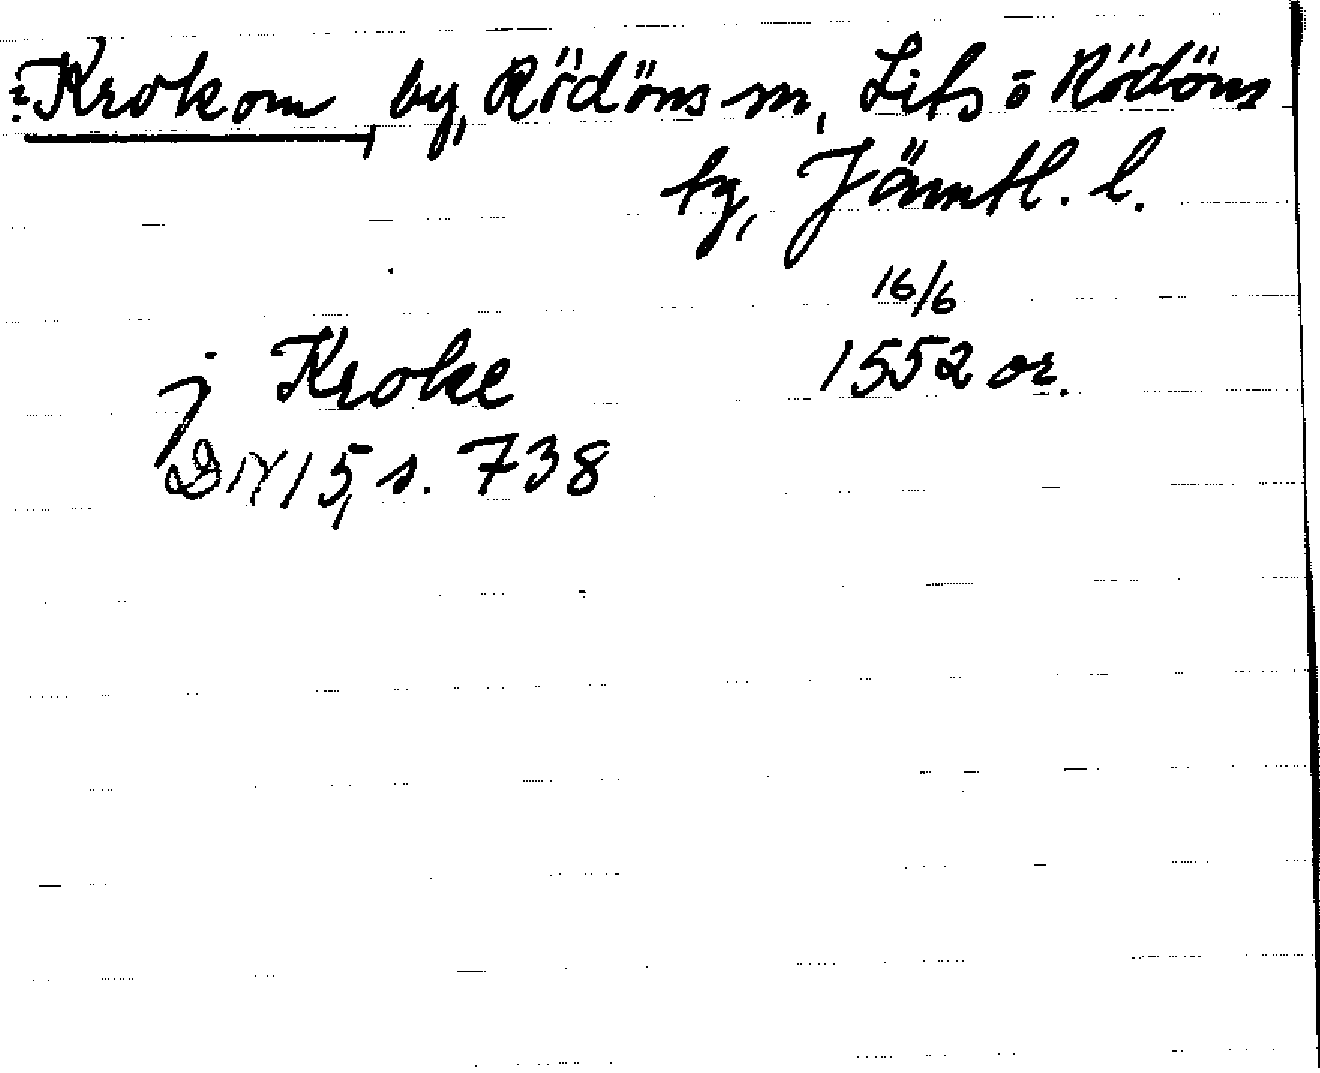 Krokom, by, Rödöns sn, Lits o Rödöns
tg, Jämtl. l.
16/6
j Kroke 1552 or.
DN 15, s. 738